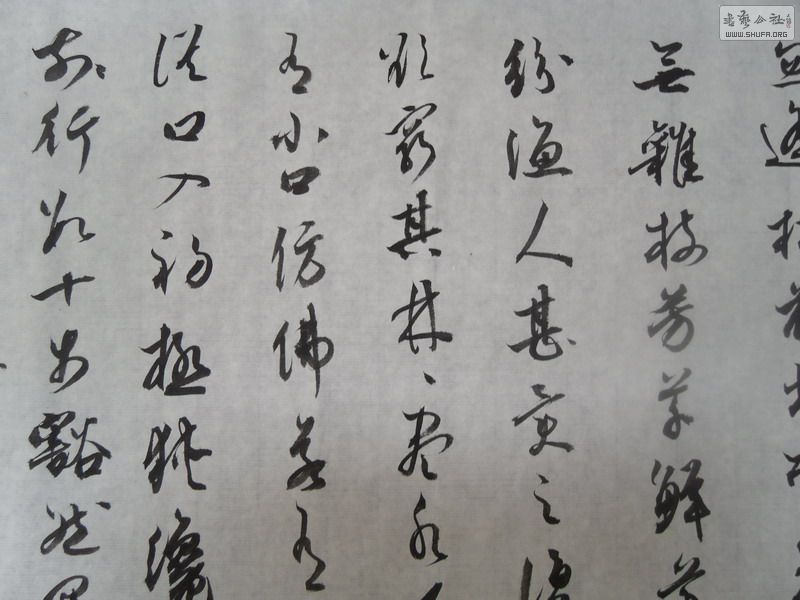 逢桃花
无雜樹芳草鮮美
紛漁人甚異之復
欲窮其林、盡水
有小口仿佛若有
從口入初極狹纔
行數十步豁然
書藝公社
WWW.SHUFA.ORG